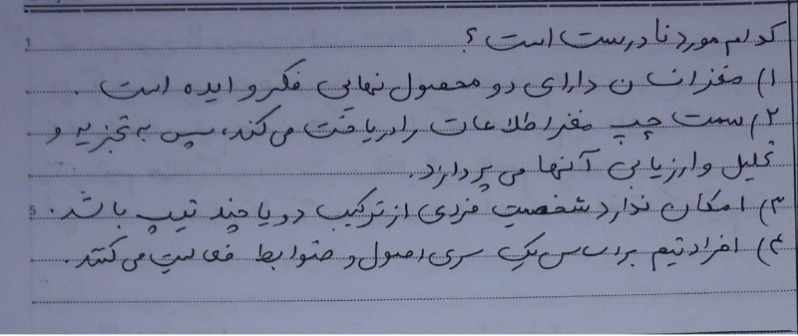 کدام مورد نادرست است؟
۱) مغز انسان دارای دو محصول نهایی فکر و ایده است.
۲) سمت چپ مغز اطلاعات را دریافت می‌کند، سپس به تجزیه و
تحلیل و ارزیابی آنها می پردازد.
۳) امکان ندارد شخصیت فردی از ترکیب دو یا چند تیپ باشد.
۴) افراد تیم براساس یک سری اصول و ضوابط فعالیت می‌کنند.